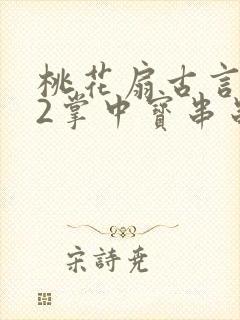 桃花扇古言
2掌中寳串
宋詩尭